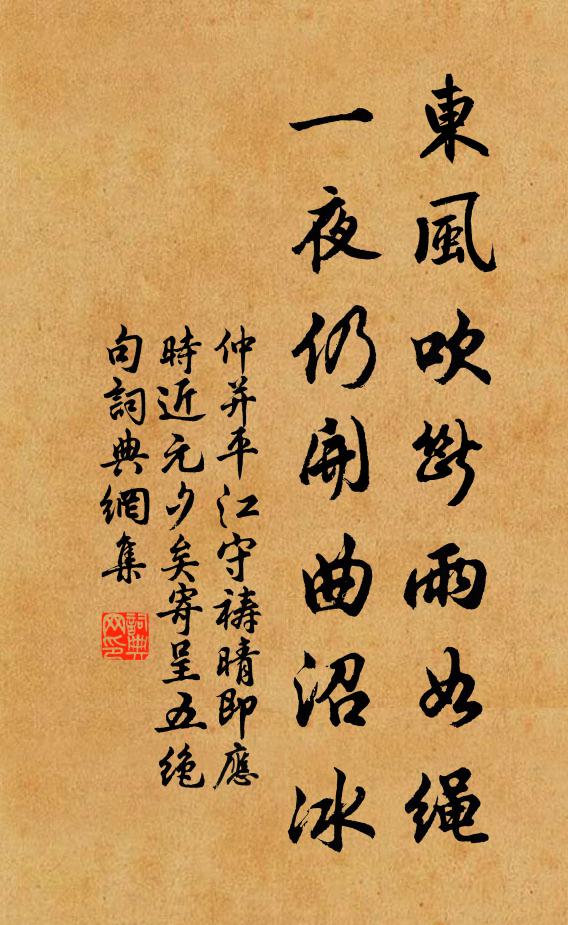 東風吹断雨如绳
一夜仍開曲沼冰
仲并平江守禱晴即應
時近元夕矣寄呈五绝
句詞典網集
詞典
网印